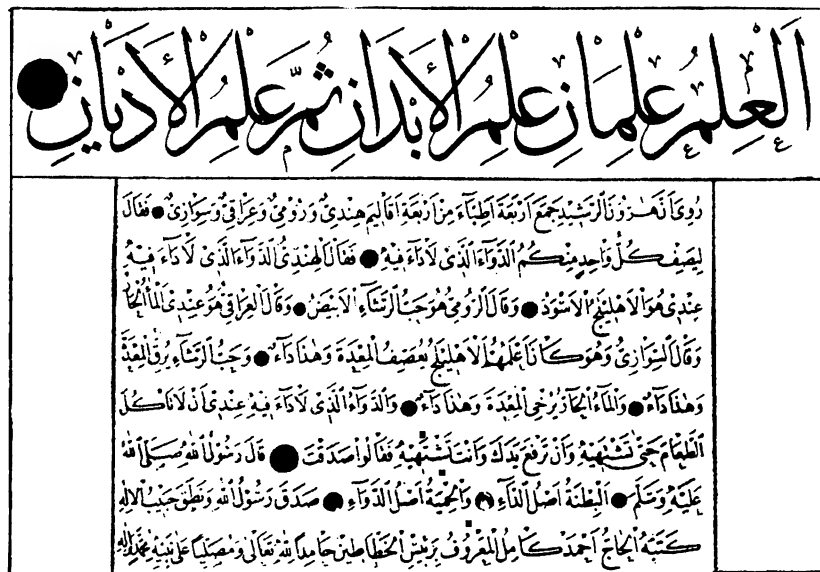 اَلْعِلْمُ عِلْمَانِ عِلْمُ الْأَبْدَانِ ثُمَّ عِلْمُ الْأَدْيَانِ
رُوِيَ اَنَّ هٰرُونَ الرَّشِيدَ جَمَعَ اَرْبَعَةَ اَطِبَّاءَ مِنْ اَرْبَعَةِ اَقَالِيمَ هِنْدِيٌّ وَرُومِيٌّ وَعِرَاقِيٌّ وَسَوَادِيٌّ فَقَالَ
لِيَصِفْ كُلُّ وَاحِدٍ مِنْكُمُ الدَّوَاءَ الَّذِي لَا دَاءَ فِيهِ فَقَالَ الْهِنْدِيُّ الدَّوَاءُ الَّذِي لَا دَاءَ فِيهِ
عِنْدِي هُوَ الْاَهْلِيلَجُ الْاَسْوَدُ وَقَالَ الرُّومِيُّ هُوَ حَبُّ الرَّشَاءِ الْاَبْيَضُ وَقَالَ الْعِرَاقِيُّ هُوَ عِنْدِي الْمَاءُ الْحَارُّ
وَقَالَ السَّوَادِيُّ وَهُوَ كَانَ اَعْلَمَهُمْ اَلْاَهْلِيلَجُ يُعَفِّصُ الْمَعِدَةَ وَهٰذَا دَاءٌ وَحَبُّ الرَّشَاءِ يُرِقُّ الْمَعِدَةَ
وَهٰذَا دَاءٌ وَالْمَاءُ الْحَارُّ يُرْخِي الْمَعِدَةَ وَهٰذَا دَاءٌ وَالدَّوَاءُ الَّذِي لَا دَاءَ فِيهِ عِنْدِي اَنْ لَا تَأْكُلَ
الطَّعَامَ حَتَّى تَشْتَهِيَهُ وَاَنْ تَرْفَعَ يَدَكَ وَاَنْتَ تَشْتَهِيهِ فَقَالُوا صَدَقْتَ قَالَ رَسُولُ اللهِ صَلَّى اللهُ
عَلَيْهِ وَسَلَّمَ اَلْبِطْنَةُ اَصْلُ الدَّاءِ وَالْحِمْيَةُ اَصْلُ الدَّوَاءِ صَدَقَ رَسُولُ اللهِ وَنَطَقَ حَبِيبُ الْاِلٰهِ
كَتَبَهُ الْحَاجُّ اَحْمَدُ كَامِلُ الْمَعْرُوفُ بِرَئِيسِ الْخَطَّاطِينَ حَامِدًا لِلّٰهِ تَعَالٰى وَمُصَلِّيًا عَلٰى نَبِيِّهِ مُحَمَّدٍ وَاٰلِهِ